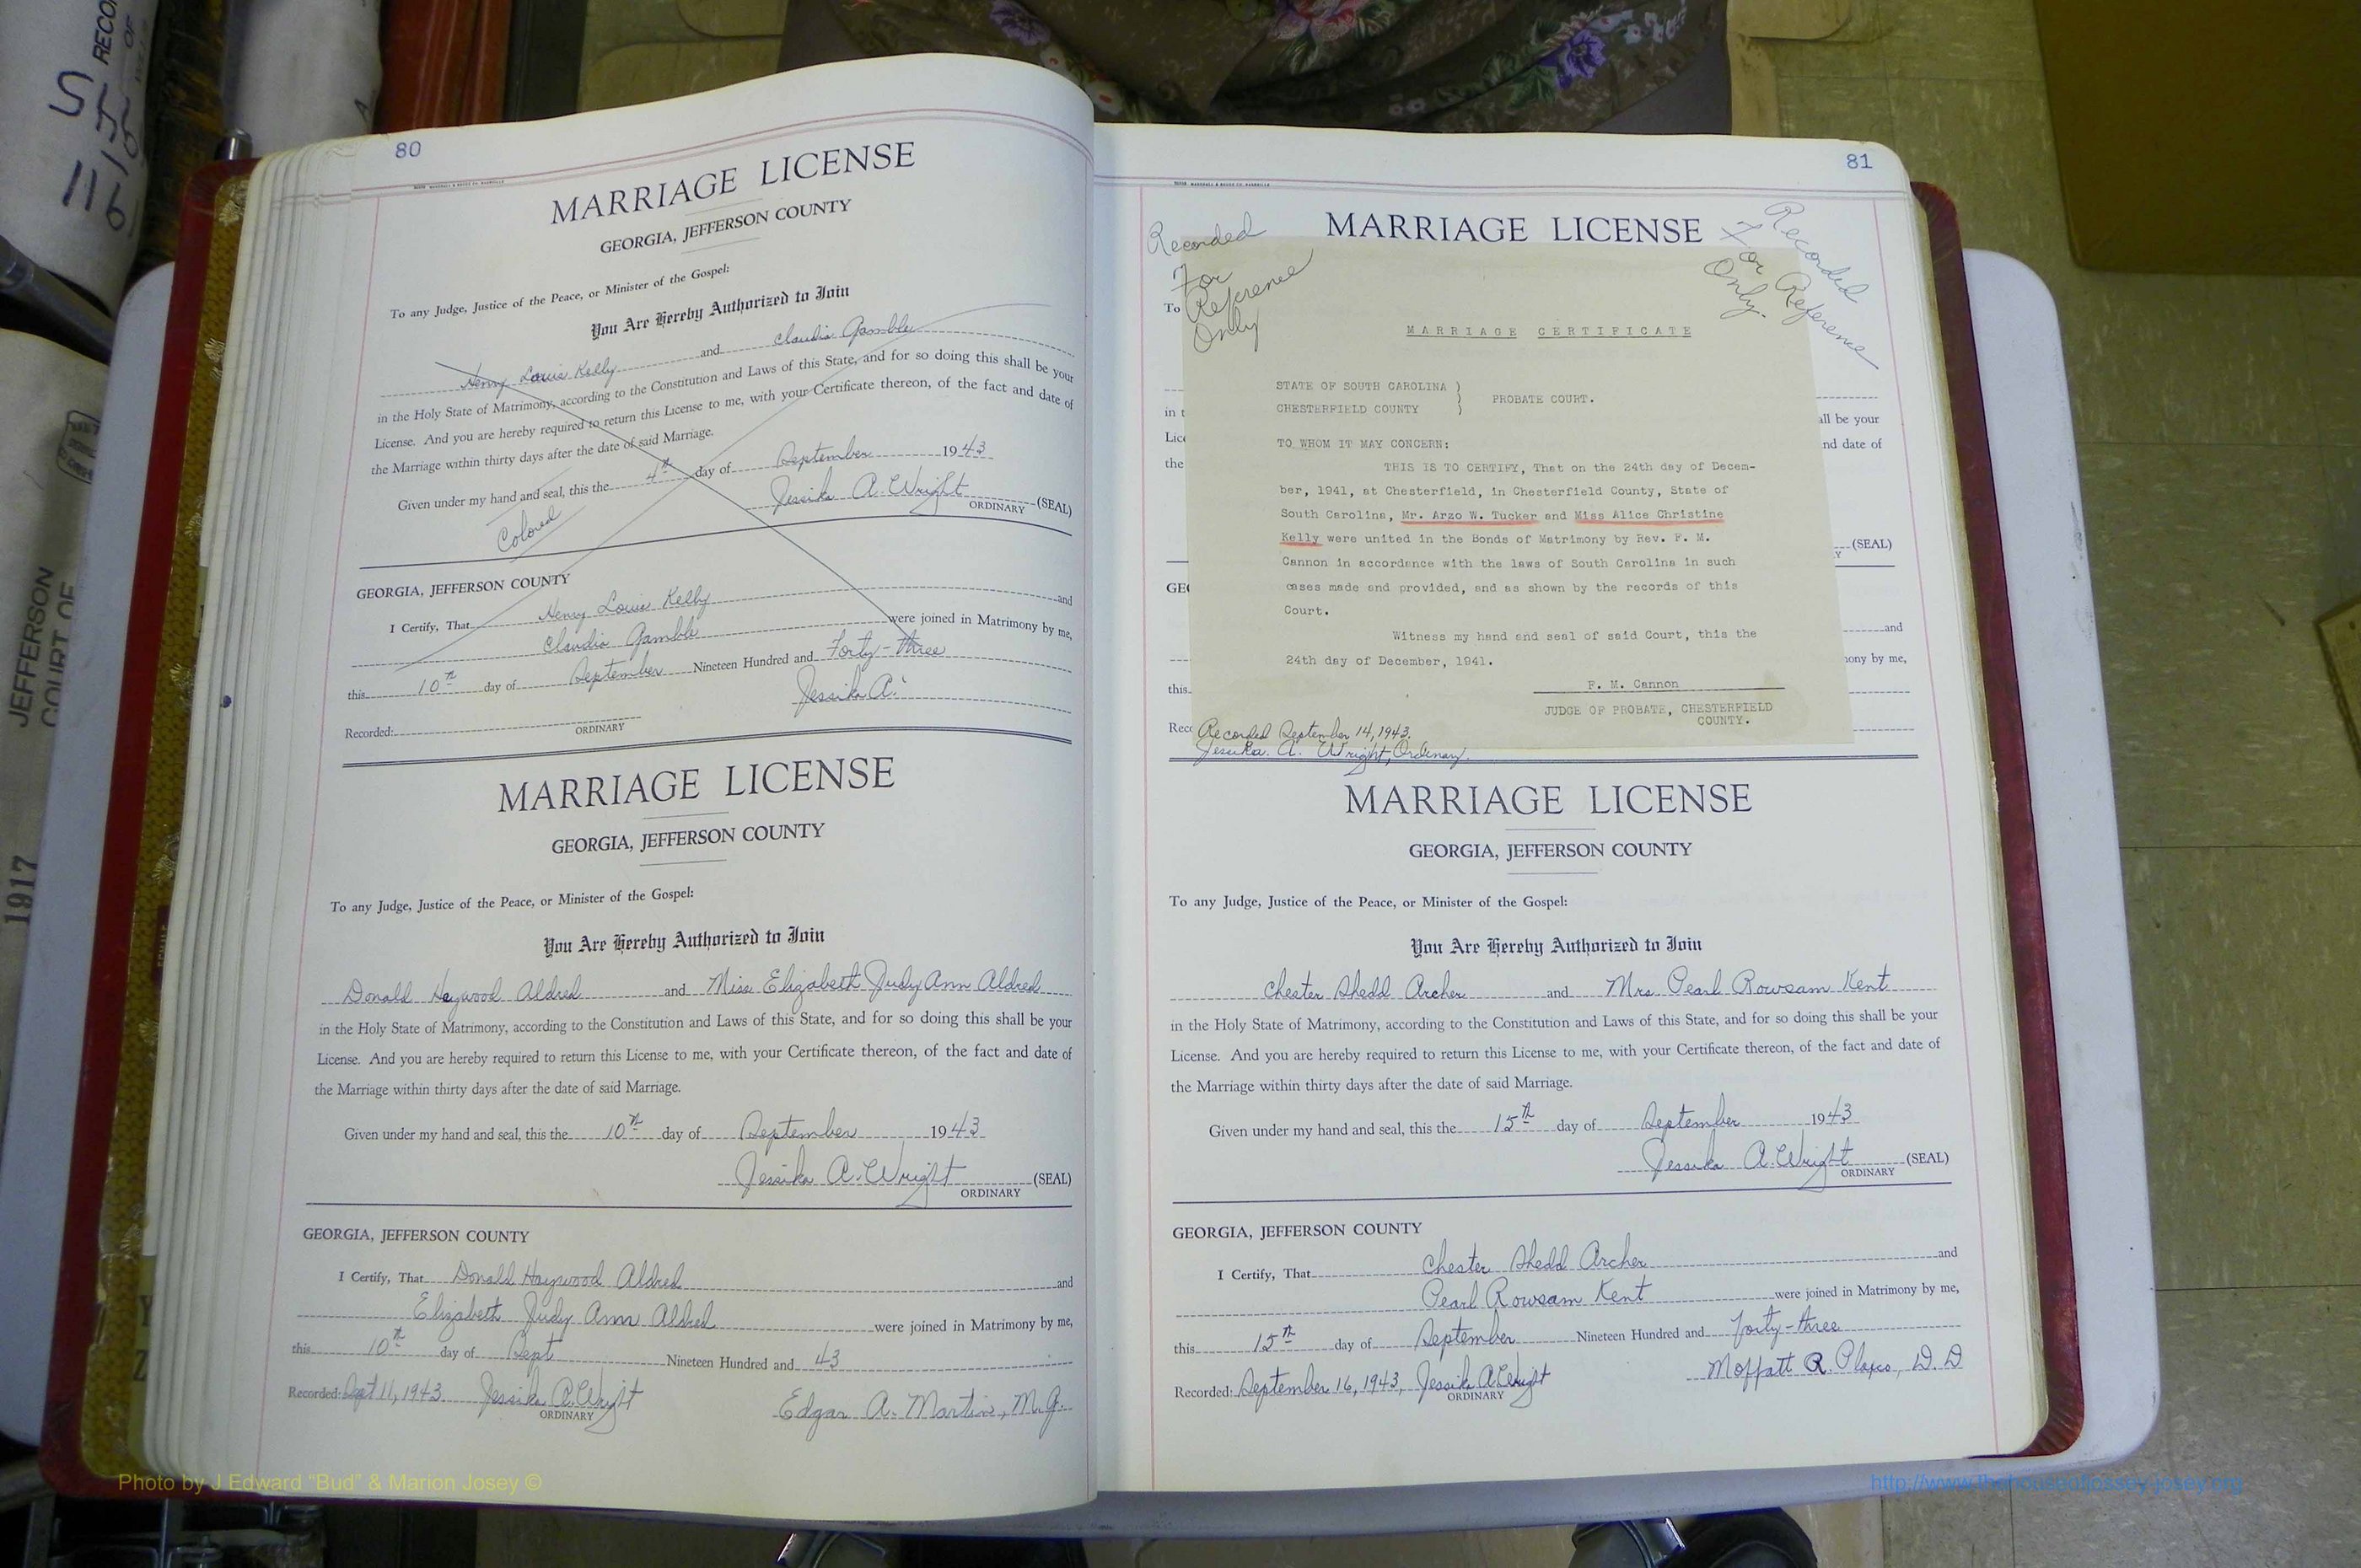 S
RECO
OF
11-15
6-16
JEFFERSON
COURT OF
1917
80
MARRIAGE LICENSE
GEORGIA, JEFFERSON COUNTY
To any Judge, Justice of the Peace, or Minister of the Gospel:
You Are Hereby Authorized to Join
Henry Louie Kelly and Claudia Gamble
in the Holy State of Matrimony, according to the Constitution and Laws of this State, and for so doing this shall be your
License. And you are hereby required to return this License to me, with your Certificate thereon, of the fact and date of
the Marriage within thirty days after the date of said Marriage.
Given under my hand and seal, this the 4th day of September 1943
Jessika A. Wright (SEAL)
ORDINARY
Colored
GEORGIA, JEFFERSON COUNTY
I Certify, That Henry Louie Kelly and
Claudia Gamble were joined in Matrimony by me,
this 10th day of September Nineteen Hundred and Forty-three
Jessika A.
Recorded: ORDINARY
MARRIAGE LICENSE
GEORGIA, JEFFERSON COUNTY
To any Judge, Justice of the Peace, or Minister of the Gospel:
You Are Hereby Authorized to Join
Donald Haywood Aldred and Miss Elizabeth Judy Ann Aldred
in the Holy State of Matrimony, according to the Constitution and Laws of this State, and for so doing this shall be your
License. And you are hereby required to return this License to me, with your Certificate thereon, of the fact and date of
the Marriage within thirty days after the date of said Marriage.
Given under my hand and seal, this the 10th day of September 1943
Jessika A. Wright (SEAL)
ORDINARY
GEORGIA, JEFFERSON COUNTY
I Certify, That Donald Haywood Aldred and
Elizabeth Judy Ann Aldred were joined in Matrimony by me,
this 10th day of Sept Nineteen Hundred and 43
Recorded: Sept 11, 1943. Jessika A. Wright Edgar A. Martin, M.G.
ORDINARY
81
MARRIAGE LICENSE
Recorded
For
Reference
Only
Recorded
For Reference
Only.
To
MARRIAGE CERTIFICATE
STATE OF SOUTH CAROLINA )
) PROBATE COURT.
CHESTERFIELD COUNTY )
TO WHOM IT MAY CONCERN:
THIS IS TO CERTIFY, That on the 24th day of Decem-
ber, 1941, at Chesterfield, in Chesterfield County, State of
South Carolina, Mr. Arzo W. Tucker and Miss Alice Christine
Kelly were united in the Bonds of Matrimony by Rev. F. M.
Cannon in accordance with the laws of South Carolina in such
cases made and provided, and as shown by the records of this
Court.
Witness my hand and seal of said Court, this the
24th day of December, 1941.
F. M. Cannon
JUDGE OF PROBATE, CHESTERFIELD
COUNTY.
Recorded September 14, 1943.
Jessika A. Wright, Ordinary.
in t
all be your
Lice
nd date of
the
(SEAL)
Y
GE
and
ony by me,
this
Rec
MARRIAGE LICENSE
GEORGIA, JEFFERSON COUNTY
To any Judge, Justice of the Peace, or Minister of the Gospel:
You Are Hereby Authorized to Join
Chester Shedd Archer and Mrs. Pearl Rowsam Kent
in the Holy State of Matrimony, according to the Constitution and Laws of this State, and for so doing this shall be your
License. And you are hereby required to return this License to me, with your Certificate thereon, of the fact and date of
the Marriage within thirty days after the date of said Marriage.
Given under my hand and seal, this the 15th day of September 1943
Jessika A. Wright (SEAL)
ORDINARY
GEORGIA, JEFFERSON COUNTY
I Certify, That Chester Shedd Archer and
Pearl Rowsam Kent were joined in Matrimony by me,
this 15th day of September Nineteen Hundred and forty-three
Recorded: September 16, 1943, Jessika A. Wright Moffatt R. Plaxco, D. D
ORDINARY
Photo by J Edward "Bud" & Marion Josey ©
http://www.thehouseofjossey-josey.org